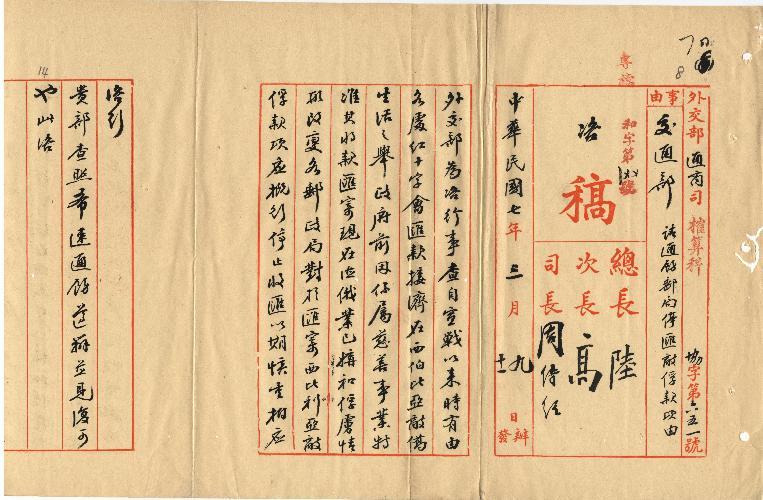 8
外交部 通商司 榷算科 協字第六五一號
事由
交通部 請通飭郵局停匯敵俘款項由
專檔
和字第 號
咨
稿
總長 陸
次長 高
司長 周傳經
中華民國七年三月 九日辦
十一 發
外交部為咨行事查自宣戰以來時有由
各處紅十字會匯款接濟在西伯比亞敵僑
生活之舉政府前因係屬慈善事業特
准其收款匯寄現在德俄業已搆和俘虜情
形改變各郵政局對於匯寄西比利亞敵
俘款項應概行停止收匯以期慎重相應
14
咨行
貴部查照希速通飭遵辦並見復可
也此咨